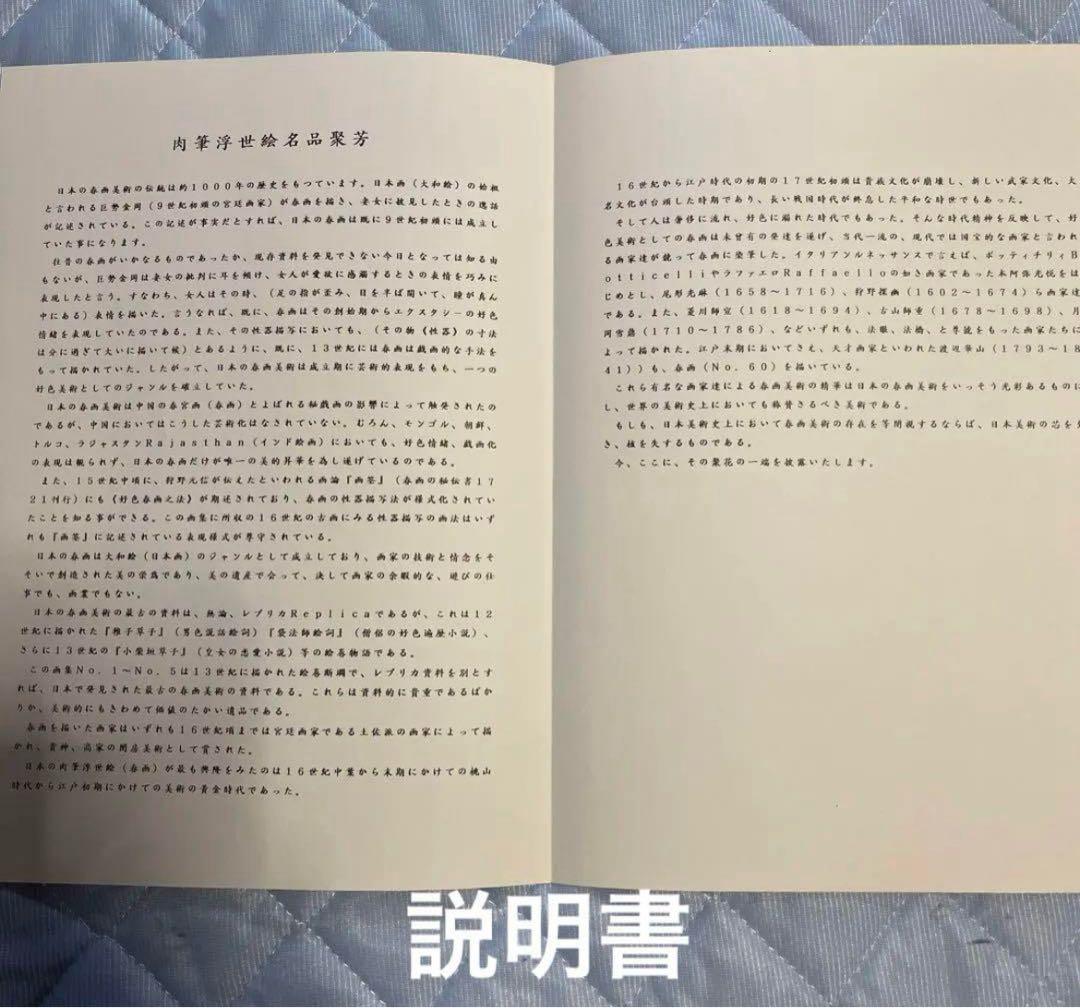 肉筆浮世絵名品聚芳
日本の春画美術の伝統は約1000年の歴史をもつています。日本画(大和絵)の始祖
と言われる巨勢金岡(9世紀初頭の宮廷画家)が春画を描き、妻女に披見したときの逸話
が記述されている。この記述が事実だとすれば、日本の春画は既に9世紀初頭には成立し
ていた事になります。
往昔の春画がいかなるものであったか、現存資料を発見できない今日となっては知る由
もないが、巨勢金岡は妻女の批判に耳を傾け、女人が愛欲に感溺するときの表情を巧みに
表現したと言う。すなわち、女人はその時、(足の指が歪み、目を半ば開いて、瞳が真ん
中にある)表情を描いた。言うなれば、既に、春画はその創始期からエクスタシーの好色
情緒を表現していたのである。また、その性器描写においても、(その物《性器》の寸法
は分に過ぎて大いに描いて候)とあるように、既に、13世紀には春画は戯画的な手法を
もって描かれていた。したがって、日本の春画美術は成立期に芸術的表現をもち、一つの
好色美術としてのジャンルを確立していた。
日本の春画美術は中国の春宮画(春画)とよばれる秘戯画の影響によって触発されたの
であるが、中国においてはこうした芸術化はなされていない。むろん、モンゴル、朝鮮、
トルコ、ラジャスタンRajasthan(インド絵画)においても、好色情緒、戯画化
の表現は観られず、日本の春画だけが唯一の美的昇華を為し遂げているのである。
また、15世紀中頃に、狩野元信が伝えたといわれる画論『画筌』(春画の秘伝書17
21刊行)にも《好色春画之法》が期述されており、春画の性器描写法が様式化されてい
たことを知る事ができる。この画集に所収の16世紀の古画にみる性器描写の画法はいず
れも『画筌』に記述されている表現様式が尊守されている。
日本の春画は大和絵(日本画)のジャンルとして成立しており、画家の技術と情念をそ
そいで創造された美の営為であり、美の遺産で会って、決して画家の余暇的な、遊びの仕
事でも、画業でもない。
日本の春画美術の最古の資料は、無論、レプリカReplicaであるが、これは12
世紀に描かれた『稚子草子』(男色説話絵詞)『袋法師絵詞』(僧侶の好色遍歴小説)、
さらに13世紀の『小柴垣草子』(皇女の恋愛小説)等の絵巻物語である。
この画集No.1~No.5は13世紀に描かれた絵巻断欄で、レプリカ資料を別とす
れば、日本で発見された最古の春画美術の資料である。これらは資料的に貴重であるばか
りか、美術的にもきわめて価値のたかい遺品である。
春画を描いた画家はいずれも16世紀頃までは宮廷画家である土佐派の画家によって描
かれ、貴神、高家の閨房美術として賞された。
日本の肉筆浮世絵(春画)が最も興隆をみたのは16世紀中葉から末期にかけての桃山
時代から江戸初期にかけての美術の黄金時代であった。
16世紀から江戸時代の初期の17世紀初頭は貴族文化が崩壊し、新しい武家文化、大
名文化が台頭した時期であり、長い戦国時代が終息した平和な時世でもあった。
そして人は奢侈に流れ、好色に溺れた時代でもあった。そんな時代精神を反映して、好
色美術としての春画は未曾有の発達を遂げ、当代一流の、現代では国宝的な画家と言われ
る画家達が競って春画に染筆した。イタリアンルネッサンスで言えば、ボッティチリB
otticelliやラファエロRaffaelloの如き画家であった本阿弥光悦をは
じめとし、尾形光琳(1658~1716)、狩野探画(1602~1674)ら画家達
である。また、菱川師宣(1618~1694)、古山師重(1678~1698)、月
岡雪鼎(1710~1786)、などいずれも、法眼、法橋、と尊号をもった画家たちに
よって描かれた。江戸末期においてさえ、天才画家といわれた渡辺華山(1793~18
41))も、春画(No.60)を描いている。
これら有名な画家達による春画美術の精華は日本の春画美術をいっそう光彩あるものに
し、世界の美術史上においても称賛さるべき美術である。
もしも、日本美術史上において春画美術の存在を等閑視するならば、日本美術の芯を欠
き、核を失するものである。
今、ここに、その聚花の一端を披露いたします。
説明書